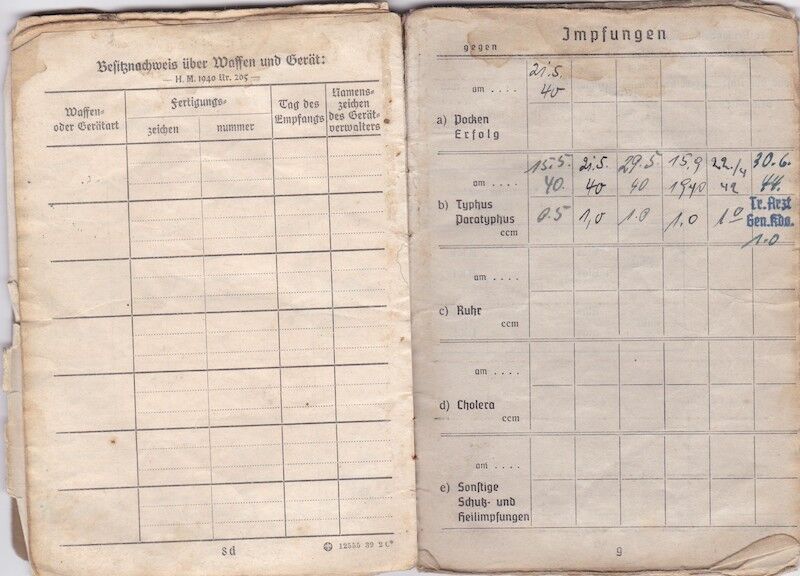 Besitznachweis über Waffen und Gerät:
— H. M. 1940 Nr. 205 —
Waffen- oder Geräteart
Fertigungs-
zeichen
nummer
Tag des Empfangs
Namens- zeichen des Gerät- verwalters
8d
12555 39 2 C
Impfungen
gegen
am . . . .
21.5. 40
a) Pocken
Erfolg
am . . . .
15.5. 40. 21.5. 40 29.5 40 15.9 1940 22./4 42 30.6. 44.
b) Typhus
Paratyphus
ccm
0.5 1,0 1.0 1.0 1.0
Tr. Arzt
Gen. Kdo.
1.0
am . . . .
c) Ruhr
ccm
am . . . .
d) Cholera
ccm
am . . . .
e) Sonstige
Schutz- und
Heilimpfungen
9